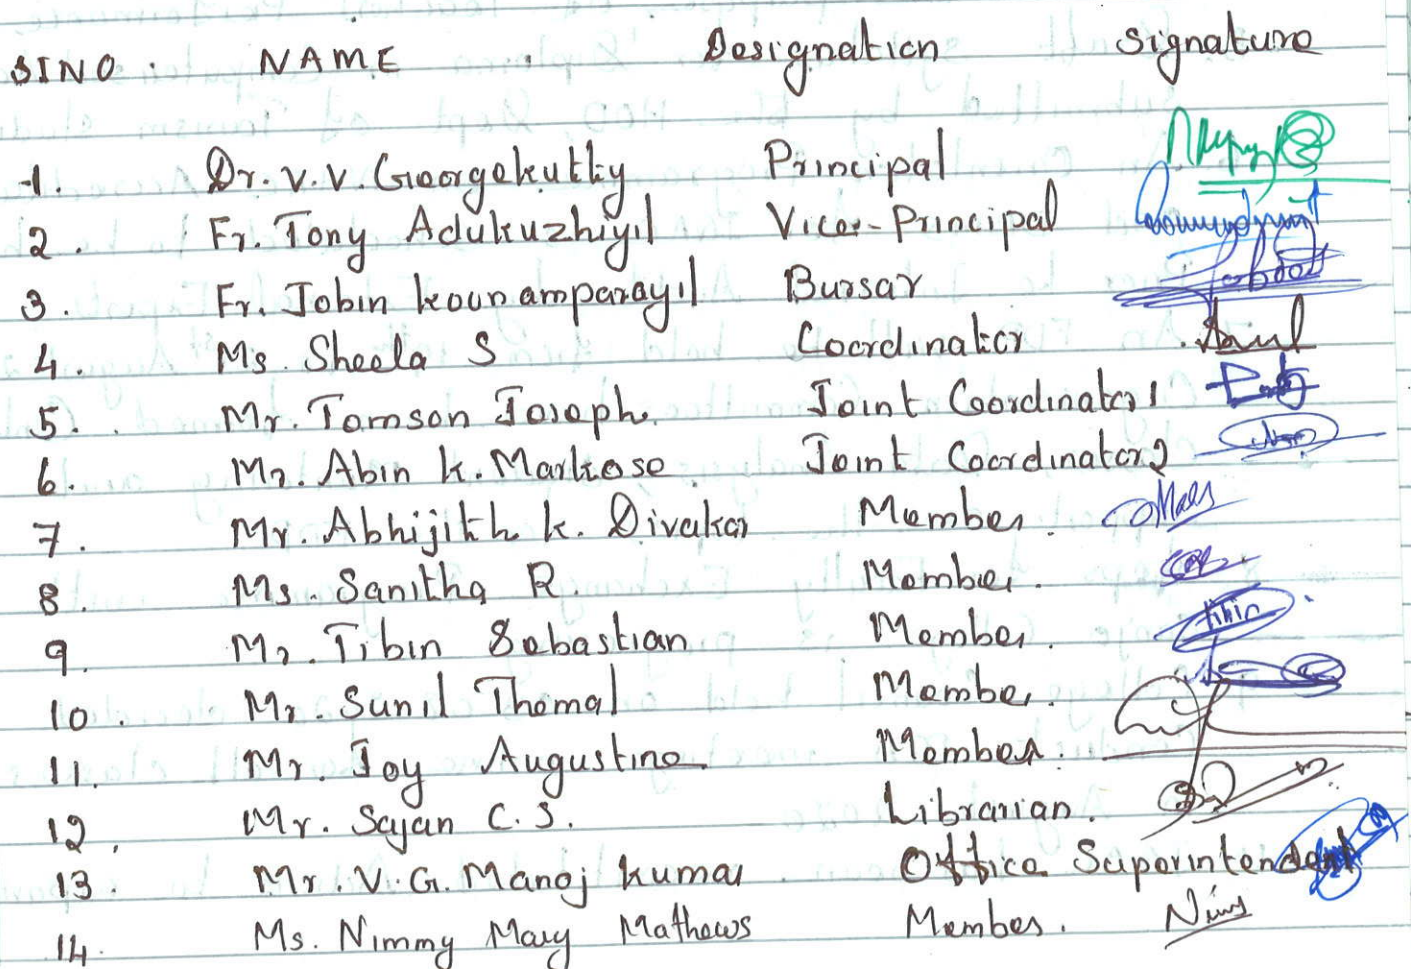 SINO. NAME Designation Signature
1. Dr. V. V. Georgekutty Principal
2. Fr. Tony Adukuzhiyil Vice-Principal
3. Fr. Jobin kounamparayil Bursar
4. Ms. Sheela S Coordinator
5. Mr. Tomson Joseph. Joint Coordinator 1
6. Mr. Abin k. Markose Joint Coordinator 2
7. Mr. Abhijith k. Divakar Member
8. Ms. Sanitha R. Member.
9. Mr. Tibin Sebastian Member. tibin
10. Mr. Sunil Thomal Member.
11. Mr. Joy Augustine. Member.
12. Mr. Sajan C. S. Librarian.
13. Mr. V. G. Manoj kumar Office Superintendent
14. Ms. Nimmy Mary Mathews Member.